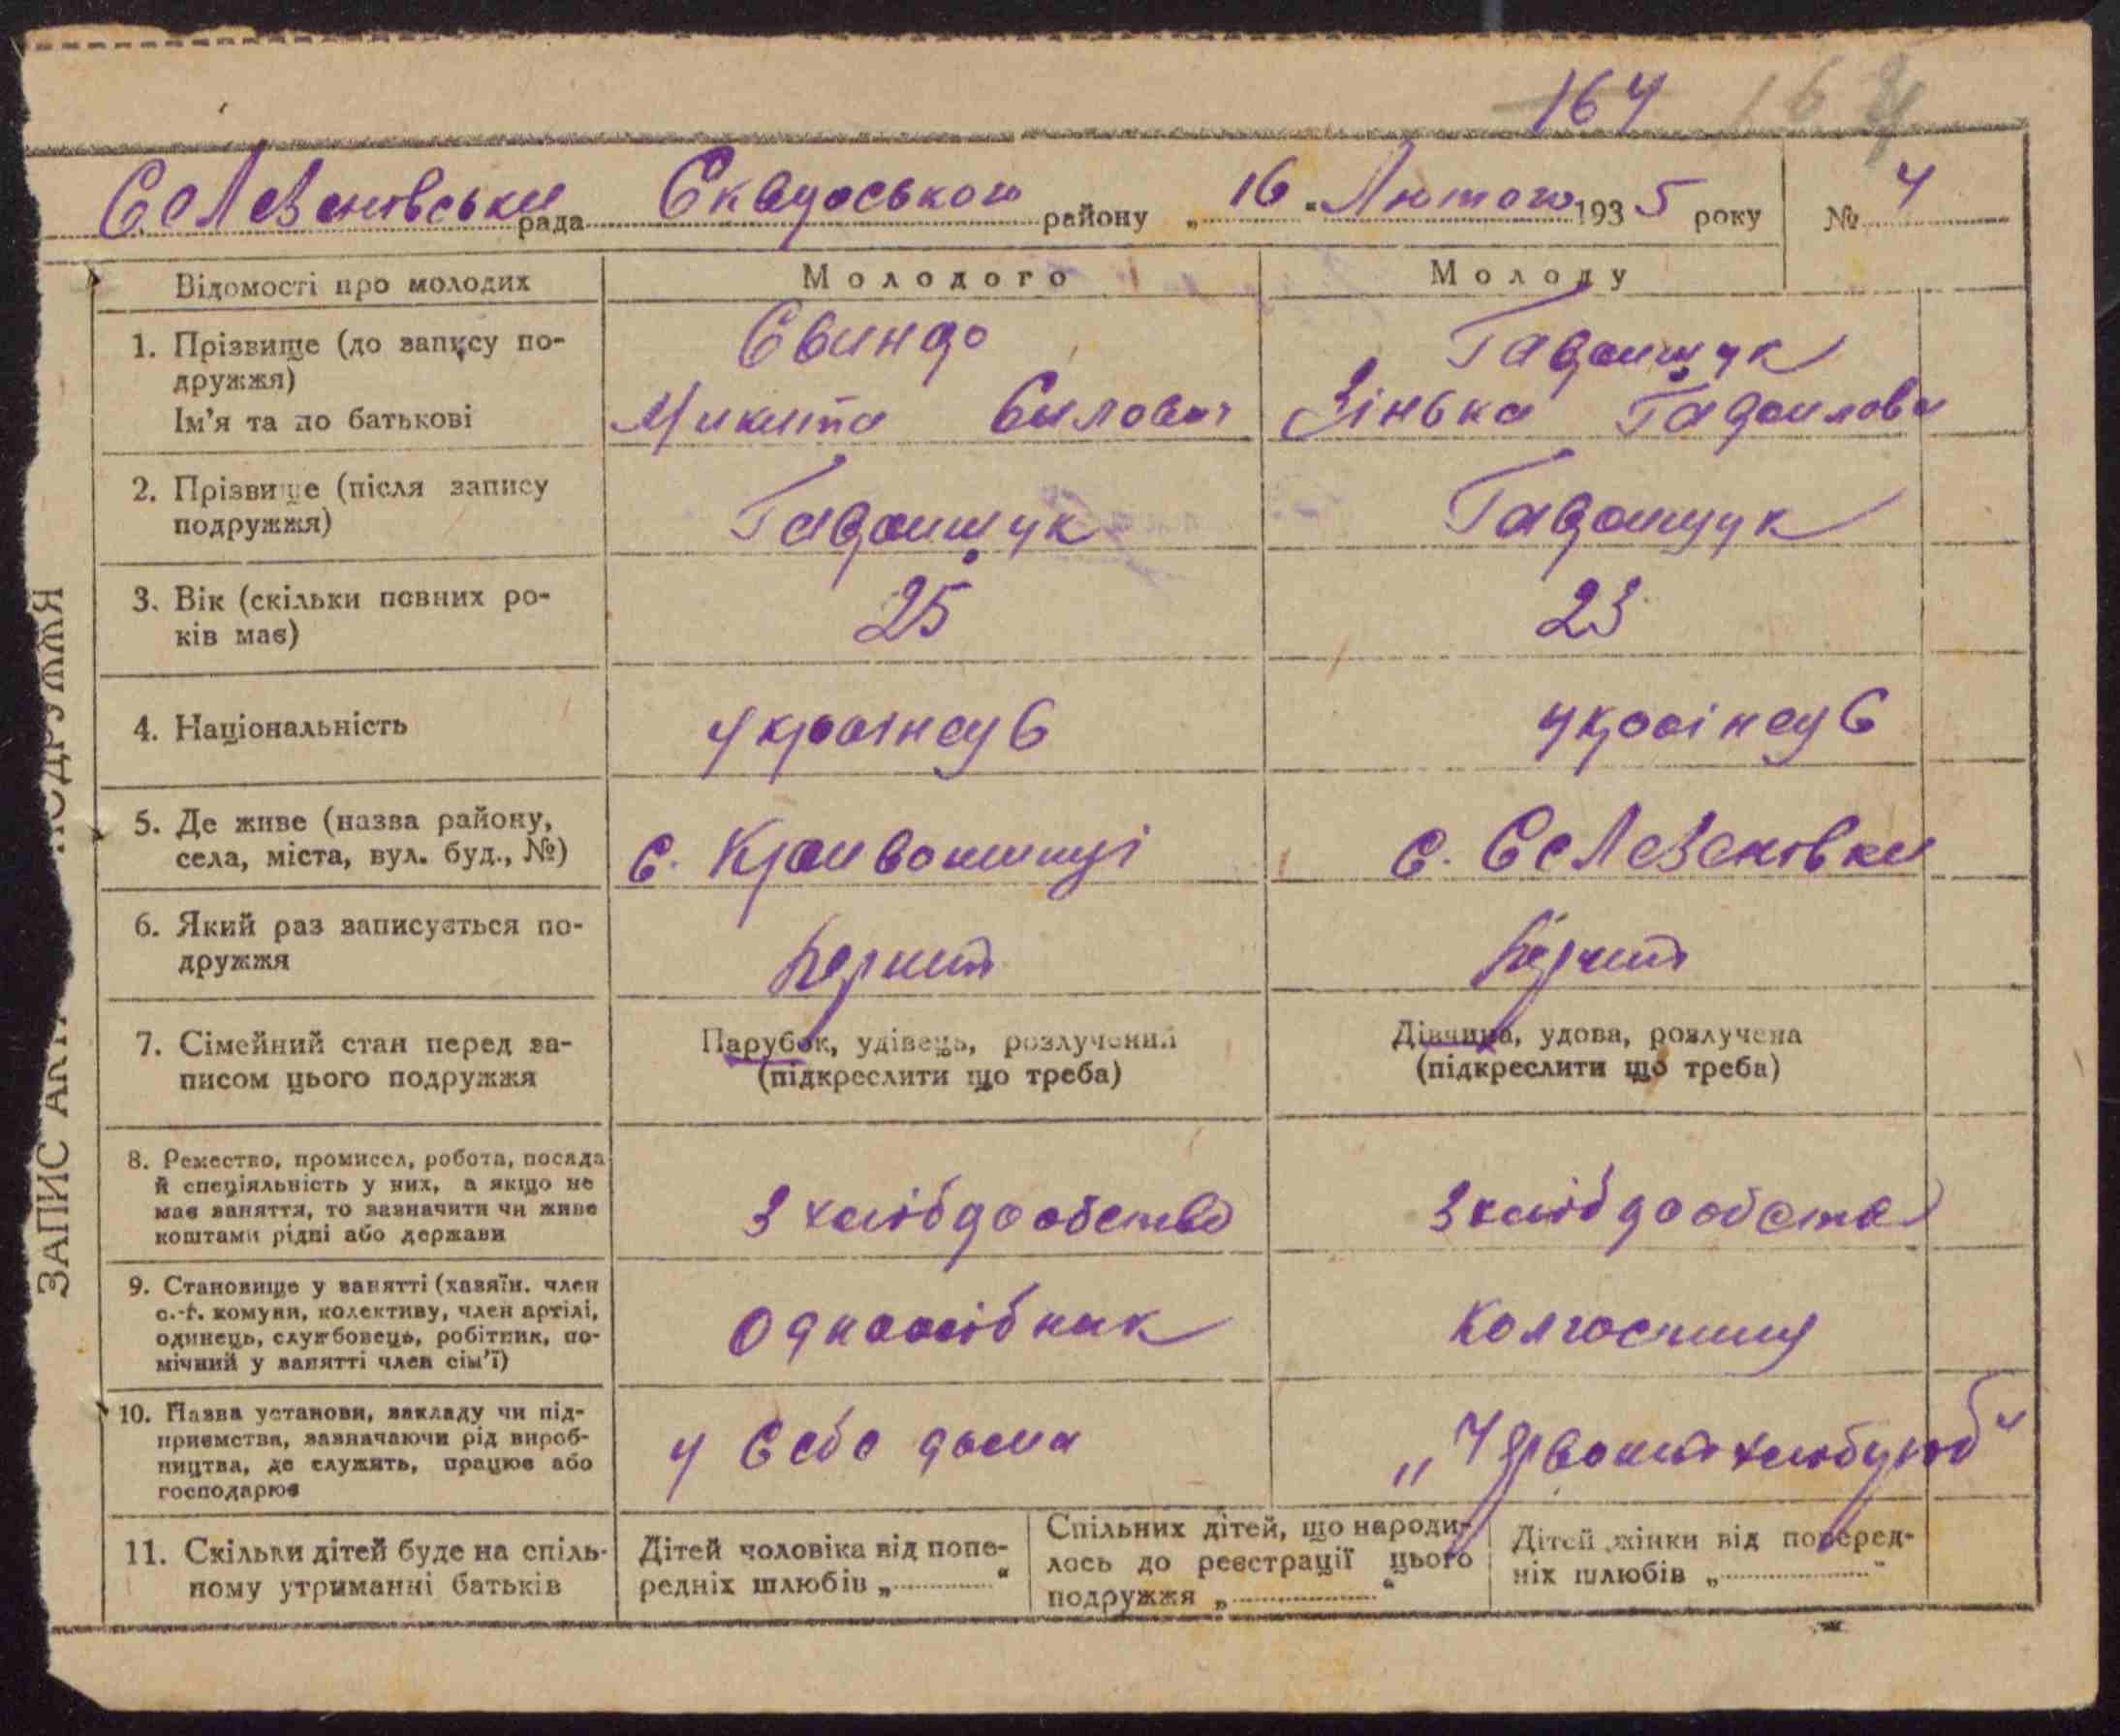 164 164
Селезенивськи рада Сквирського району „ 16 “ Лютого 1935 року № 4
Відомості про молодих Молодого Молоду
1. Прізвище (до запису по- Свиндо Гаврищук
дружжя)
Ім’я та по батькові Микита Зінька Гаврилова
2. Прізвище (після запису Гаврищук Гаврищук
подружжя)
3. Вік (скільки повних ро- 25 23
ків має)
4. Національність Українець Українець
5. Де живе (назва району,
села, міста, вул. буд., №) с. Кривошиїнці с. Селезенивки
6. Який раз записується по-
дружжя Перший Перший
7. Сімейний стан перед за- Парубок, удівець, розлучений Дівчина, удова, розлучена
писом цього подружжя (підкреслити що треба) (підкреслити що треба)
8. Ремество, промисел, робота, посада
й спеціяльність у них, а якщо не
має заняття, то зазначити чи живе З хліборобства З хліборобства
коштами рідні або держави
9. Становище у занятті (хазяїн. член
с.-г. комуни, колективу, член артілі,
одинець, службовець, робітник, по- Одноосібник Колгоспниц
мічний у занятті член сім’ї)
10. Назва установи, закладу чи під-
приємства, зазначаючи рід вироб- У себе дома „Червоний хлібороб“
ництва, де служить, працює або
господарює
11. Скільки дітей буде на спіль- Дітей чоловіка від попе- Спільних дітей, що народи- Дітей жінки від поперед-
ному утриманні батьків редніх шлюбів „ “ лось до реєстрації цього ніх шлюбів „ “
подружжя „ “
ЗАПИС АКТ ПОДРУЖЖЯ